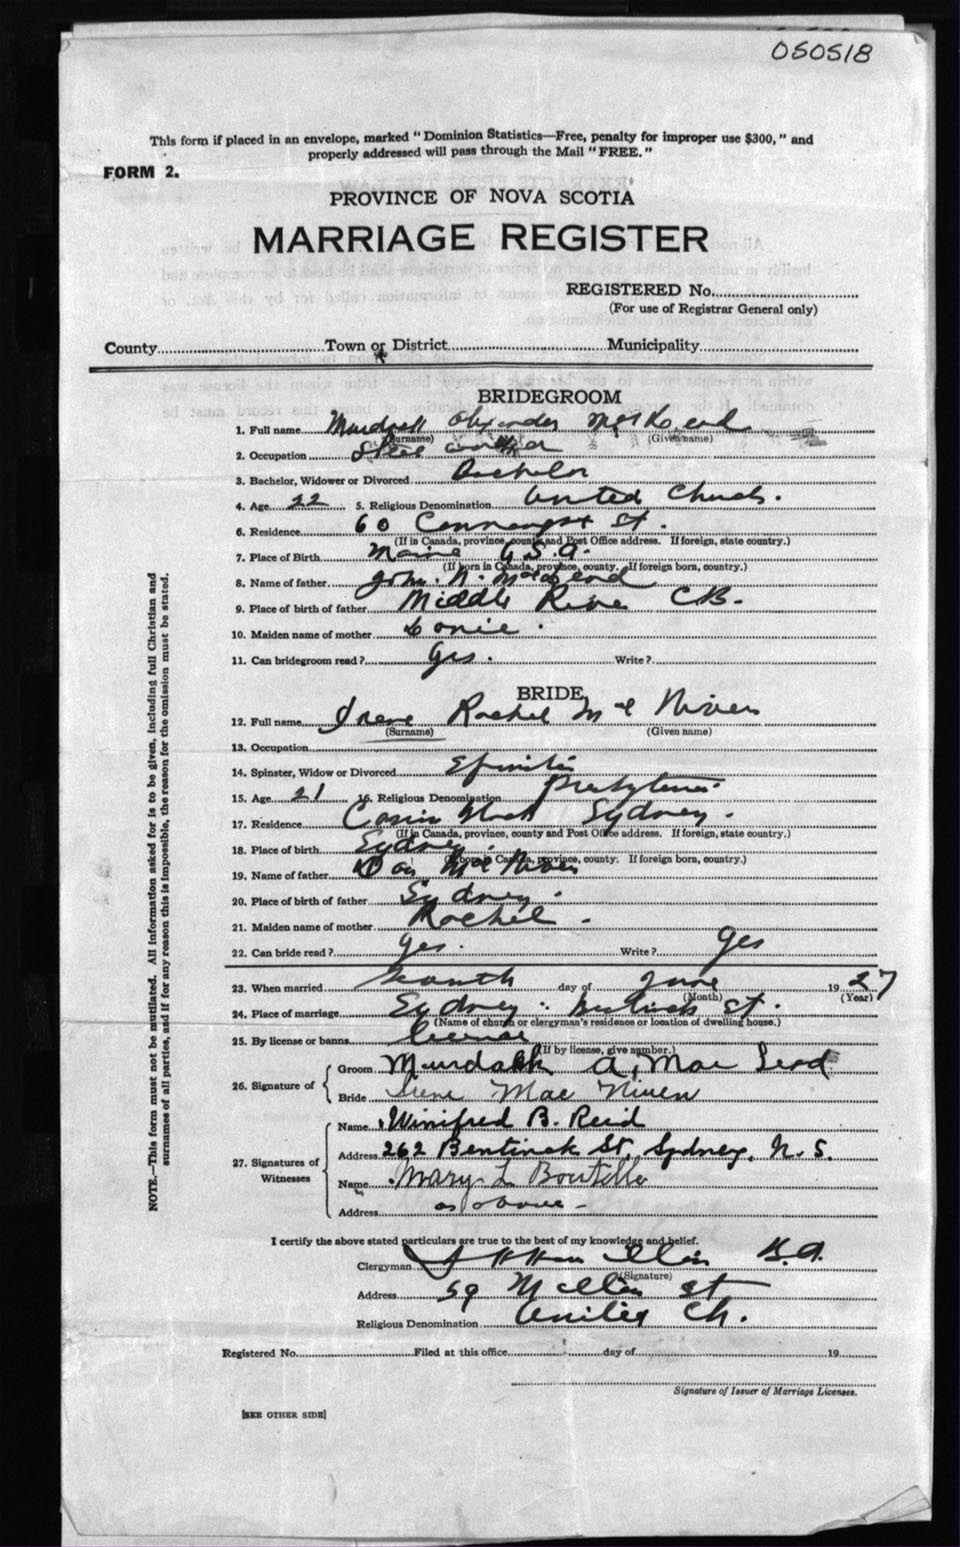 050518
This form if placed in an envelope, marked "Dominion Statistics—Free, penalty for improper use $300," and
properly addressed will pass through the Mail "FREE."
FORM 2.
PROVINCE OF NOVA SCOTIA
MARRIAGE REGISTER
REGISTERED No.
(For use of Registrar General only)
County Town or District Municipality
BRIDEGROOM
1. Full name
(Surname) (Given name)
2. Occupation Steel
3. Bachelor, Widower or Divorced Bachelor
4. Age 22 5. Religious Denomination United Church.
6. Residence 60 St.
(If in Canada, province, county and Post Office address. If foreign, state country.)
7. Place of Birth Maine U.S.A.
(If born in Canada, province, county. If foreign born, country.)
8. Name of father John N. MacLeod
9. Place of birth of father Middle River CB.
10. Maiden name of mother
11. Can bridegroom read? Yes. Write?
BRIDE
12. Full name Irene Rachel Mc Niven
(Surname) (Given name)
13. Occupation
14. Spinster, Widow or Divorced Spinster
15. Age 21 16. Religious Denomination Presbyterian
17. Residence Sydney.
(If in Canada, province, county and Post Office address. If foreign, state country.)
18. Place of birth Sydney.
(If born in Canada, province, county. If foreign born, country.)
19. Name of father Dan Mc Niven
20. Place of birth of father Sydney.
21. Maiden name of mother Rachel
22. Can bride read? Yes. Write? Yes
23. When married day of June 1927
(Month) (Year)
24. Place of marriage Sydney: Bentinck St.
(Name of church or clergyman's residence or location of dwelling house.)
25. By license or banns License
(If by license, give number.)
26. Signature of
Groom Murdock A. Mac Leod
Bride Irene Mac Niven
27. Signatures of
Witnesses
Name Winifred B. Reid
Address 262 Bentinck St, Sydney, N.S.
Name Mary L Boutilier
Address as above
I certify the above stated particulars are true to the best of my knowledge and belief.
Clergyman B.A.
(Signature)
Address 59 St
Religious Denomination United Ch.
Registered No. Filed at this office day of 19
Signature of Issuer of Marriage Licenses.
[SEE OTHER SIDE]
NOTE.—This form must not be mutilated. All information asked for is to be given, including full Christian and
surnames of all parties, and if for any reason this is impossible, the reason for the omission must be stated.